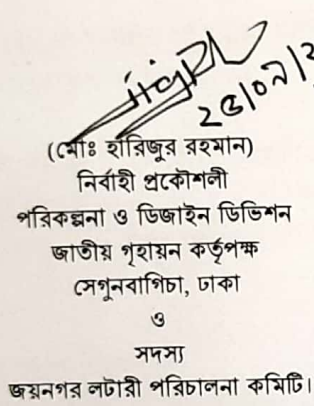 (মোঃ হারিজুর রহমান)
নির্বাহী প্রকৌশলী
পরিকল্পনা ও ডিজাইন ডিভিশন
জাতীয় গৃহায়ন কর্তৃপক্ষ
সেগুনবাগিচা, ঢাকা
ও
সদস্য
জয়নগর লটারী পরিচালনা কমিটি।